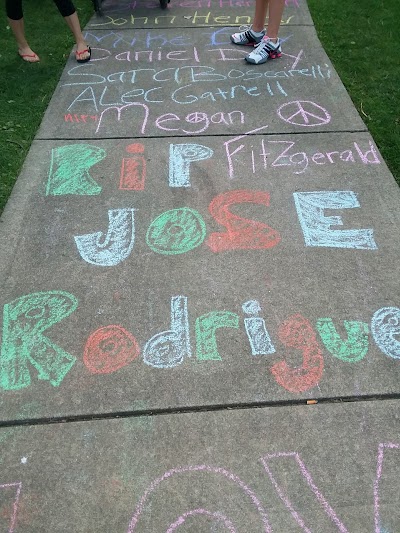 John Henry
Mike D
Daniel Day
Sara Boscarelli
ALec Gatrell
Megan
RIP FitZgerald
JOSE
Rodrigue
LOV